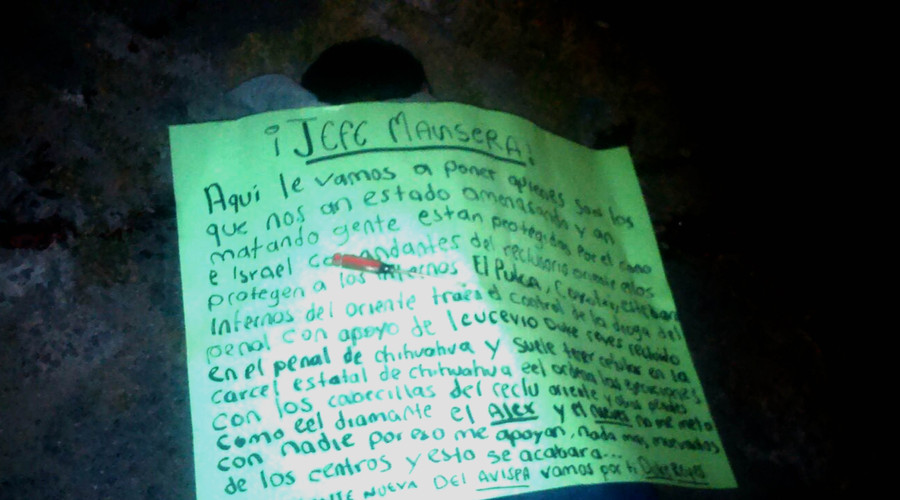 ¡JEFE MANSERA!
Aqui le vamos a poner quienes son los
que nos an estado amenasando y an
matando gente estan protegidos por el como
e Israel comandantes del reclusorio oriente ellos
protegen a los internos El Pulga,
internos del oriente traen el control de la droga del
penal con apoyo de leucevio Duke reyes recluido
en el penal de chihuahua y suele tener celular en la
carcel estatal de chihuahua eel ordena las ejecuciones
con los cabecillas del reclu oriente y otros penales
como eel diamante el Alex y el nueve no me meto
con nadie por eso me apoyan, nada mas,
de los centros y esto se acabara...
NUEVA DEL AVISPA vamos por ti Duke Reyes